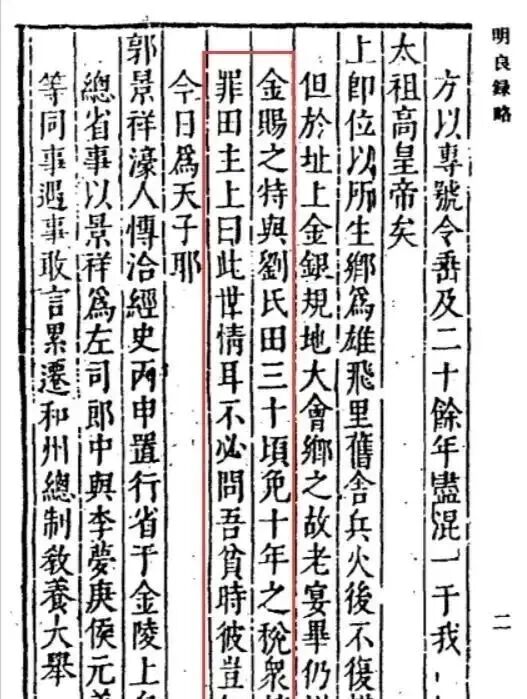 明良録略
方以專號令垂及二十餘年盡混一于我
太祖高皇帝矣
上即位以所生鄉爲雄飛里舊舍兵火後不復
但於址上金銀規地大會鄉之故老宴畢仍
金賜之特與劉氏田三十頃免十年之稅衆
罪田主上曰此世情耳不必問吾貧時彼豈
今日爲天子耶
郭景祥濠人博洽經史丙申置行省于金陵上
總省事以景祥爲左司郎中與李夢庚侯元善
等同事遇事敢言累遷和州總制教養大舉
二